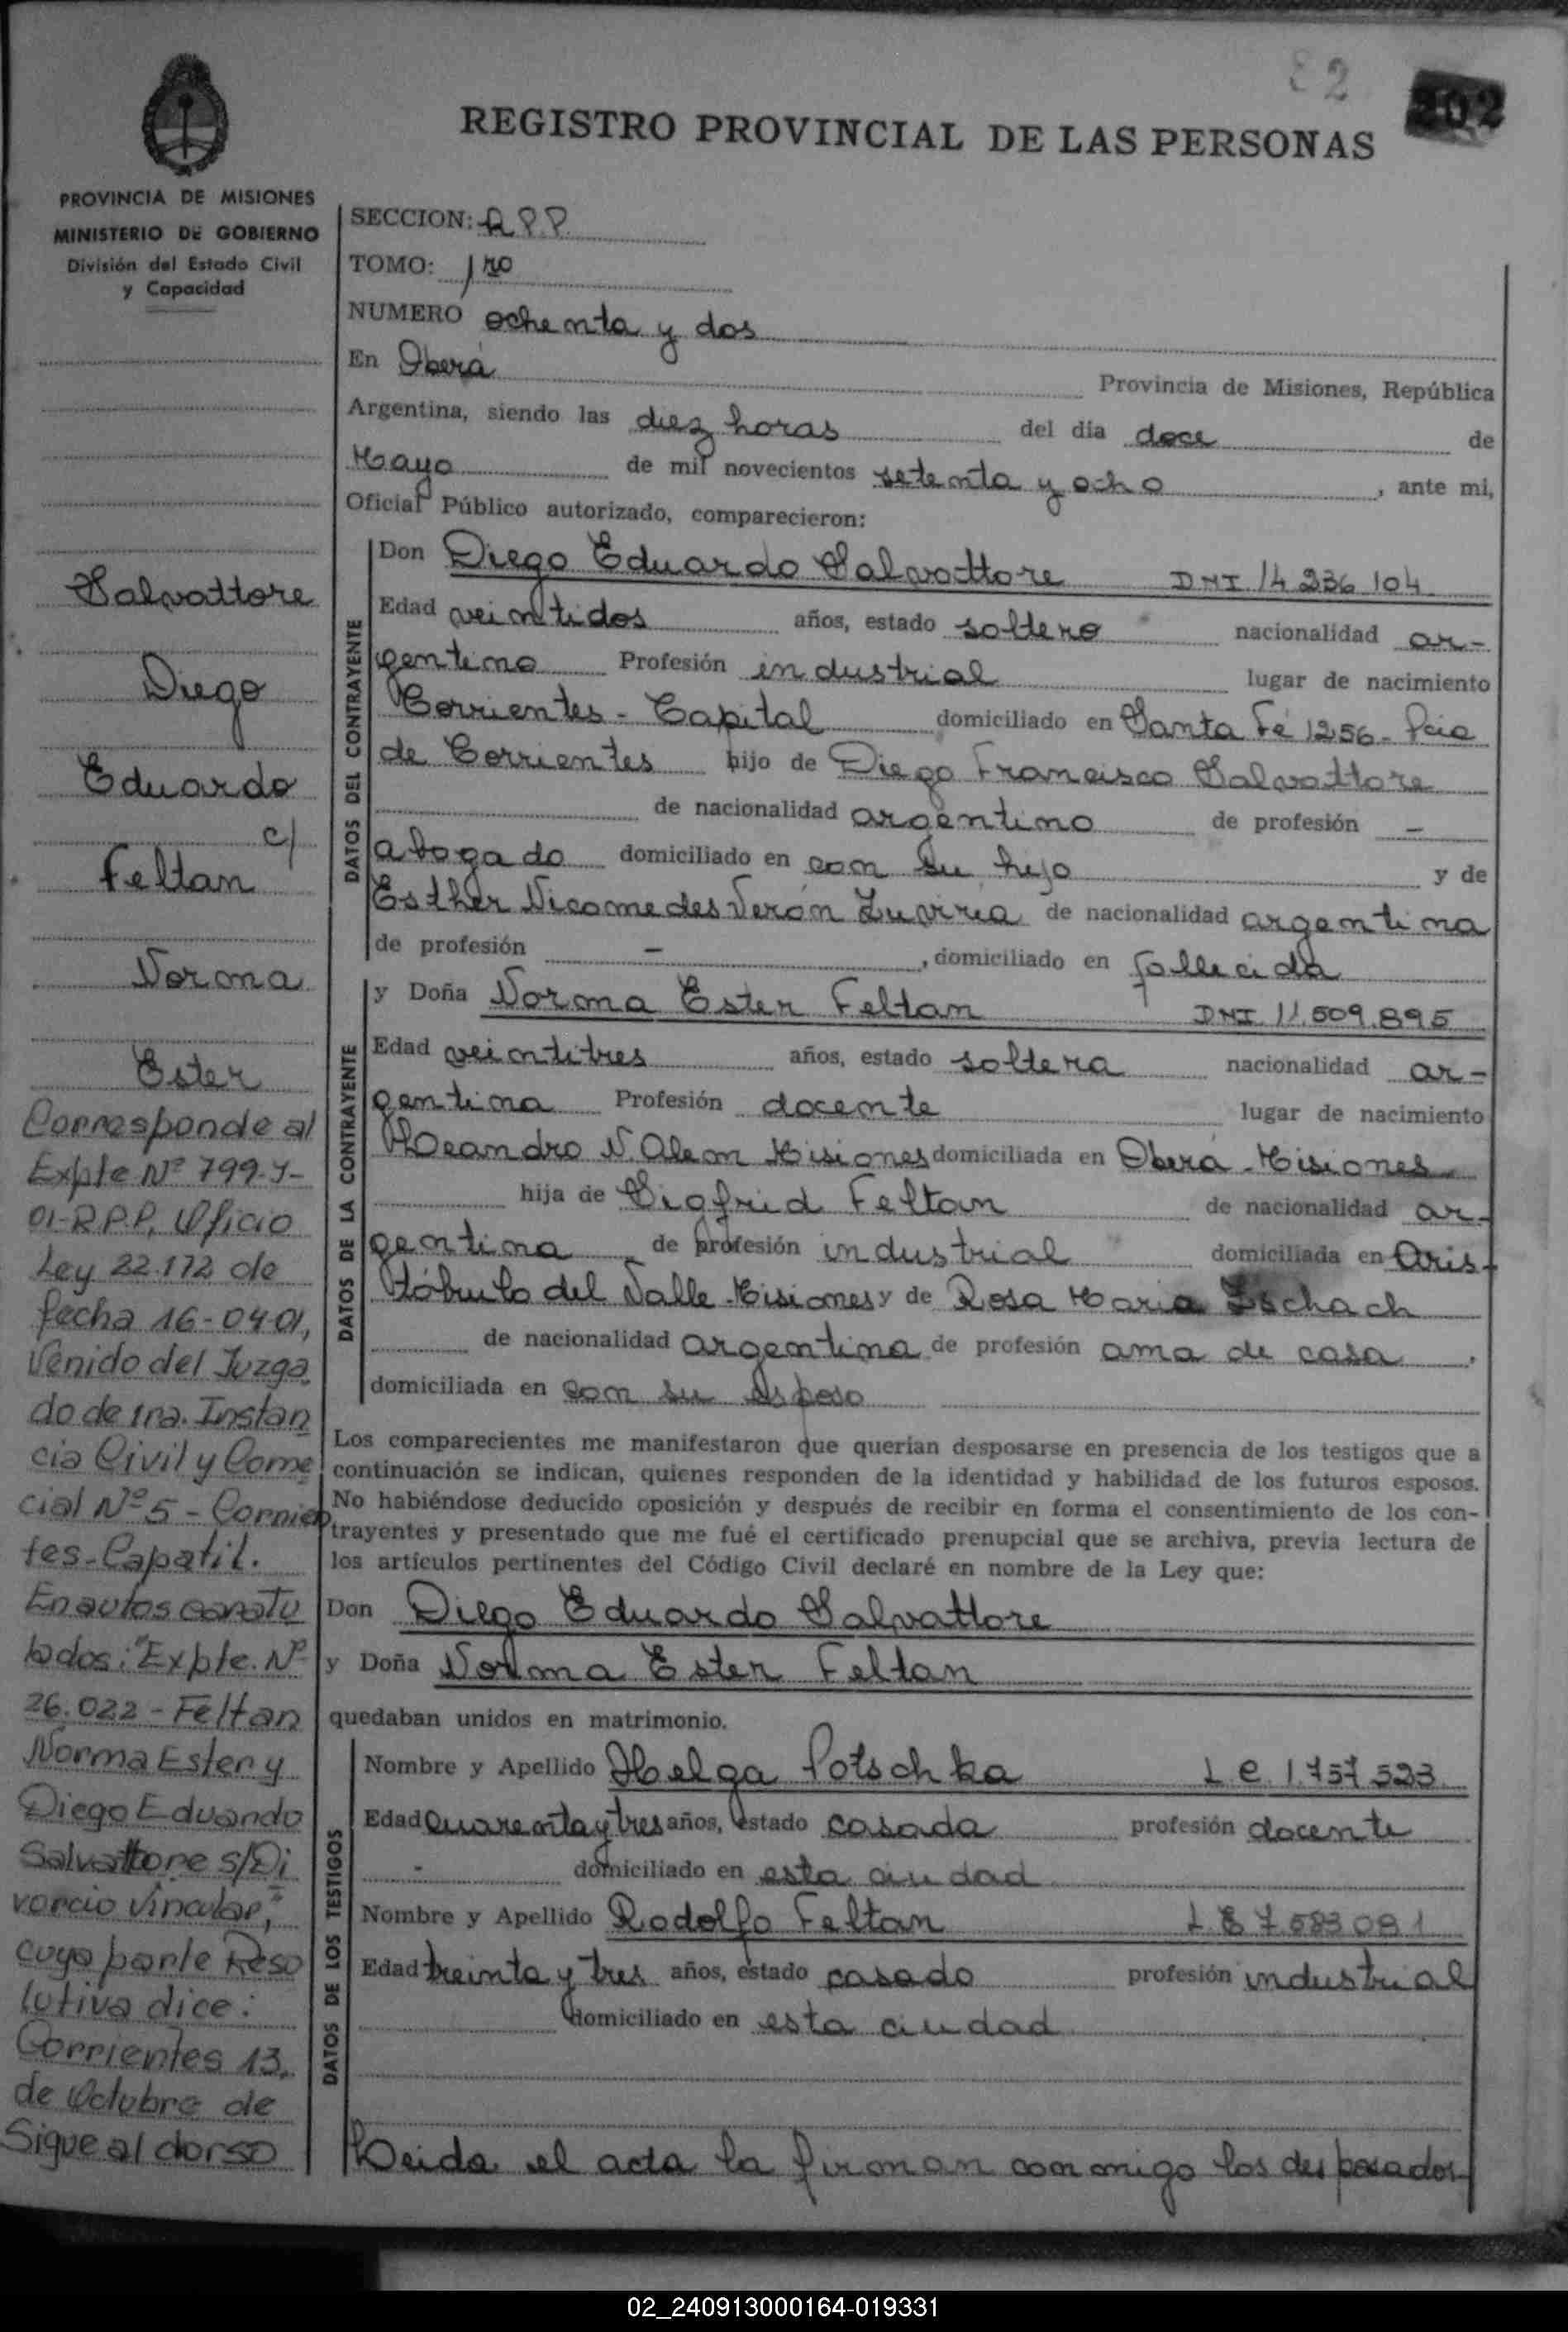 82
202
REGISTRO PROVINCIAL DE LAS PERSONAS
PROVINCIA DE MISIONES
MINISTERIO DE GOBIERNO
División del Estado Civil
y Capacidad
Salvattore
Diego
Eduardo
c/
Feltan
Norma
Ester
Corresponde al
Expte Nº 799-Y-
01-R.P.P, Oficio
Ley 22.172 de
fecha 16-04-01,
Venido del Juzga
do de 1ra. Instan
cia Civil y Come
cial Nº 5 - Corrien
tes-Capatil.
En autos caratu
lados: "Expte. Nº
26.022 - Feltan
Norma Ester y
Diego Eduardo
Salvattore s/Di
vorcio Vincular,"
cuya parte Reso
lutiva dice:
Corrientes 13,
de Octubre de
Sigue al dorso
SECCION: R.P.P.
TOMO: 1ro
NUMERO ochenta y dos
En Oberá Provincia de Misiones, República
Argentina, siendo las diez horas del día doce de
Mayo de mil novecientos setenta y ocho, ante mi,
Oficial Público autorizado, comparecieron:
DATOS DEL CONTRAYENTE
Don Diego Eduardo Salvattore DNI 14.236.104
Edad veintidos años, estado soltero nacionalidad ar-
gentino Profesión industrial lugar de nacimiento
Corrientes - Capital domiciliado en Santa Fé 1256- Pcia
de Corrientes hijo de Diego Francisco Salvattore
de nacionalidad argentino de profesión -
abogado domiciliado en con su hijo y de
Esther Nicomedes Verón Zuviria de nacionalidad argentina
de profesión - , domiciliado en fallecida
DATOS DE LA CONTRAYENTE
y Doña Norma Ester Feltan DNI 11.509.895
Edad veintitres años, estado soltera nacionalidad ar-
gentina Profesión docente lugar de nacimiento
Leandro N. Alem Misiones domiciliada en Oberá - Misiones
hija de Sigfrid Feltan de nacionalidad ar-
gentina de profesión industrial domiciliada en Aris-
tóbulo del Valle - Misiones y de Rosa Maria Zschach
de nacionalidad argentina de profesión ama de casa,
domiciliada en con su esposo
Los comparecientes me manifestaron que querían desposarse en presencia de los testigos que a
continuación se indican, quienes responden de la identidad y habilidad de los futuros esposos.
No habiéndose deducido oposición y después de recibir en forma el consentimiento de los con-
trayentes y presentado que me fué el certificado prenupcial que se archiva, previa lectura de
los artículos pertinentes del Código Civil declaré en nombre de la Ley que:
Don Diego Eduardo Salvattore
y Doña Norma Ester Feltan
quedaban unidos en matrimonio.
DATOS DE LOS TESTIGOS
Nombre y Apellido Helga Potschka L C 1.757.523
Edad cuarenta y tres años, estado casada profesión docente
- domiciliado en esta ciudad
Nombre y Apellido Rodolfo Feltan L E 7.583.081
Edad treinta y tres años, estado casado profesión industrial
domiciliado en esta ciudad
Leida el acta la firman conmigo los desposados
02_240913000164-019331